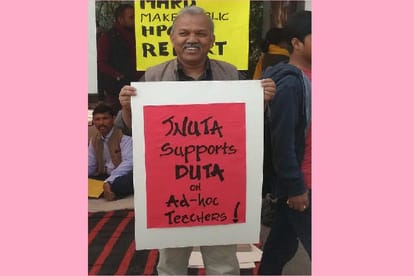 MAKE PUBLIC
REPORT
JNUTA
Supports
DUTA
on
Ad-hoc
Teachers!